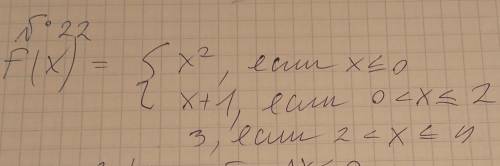 № 22
f(x) = { x², если x ≤ 0
x+1, если 0 < x ≤ 2
3, если 2 < x ≤ 4